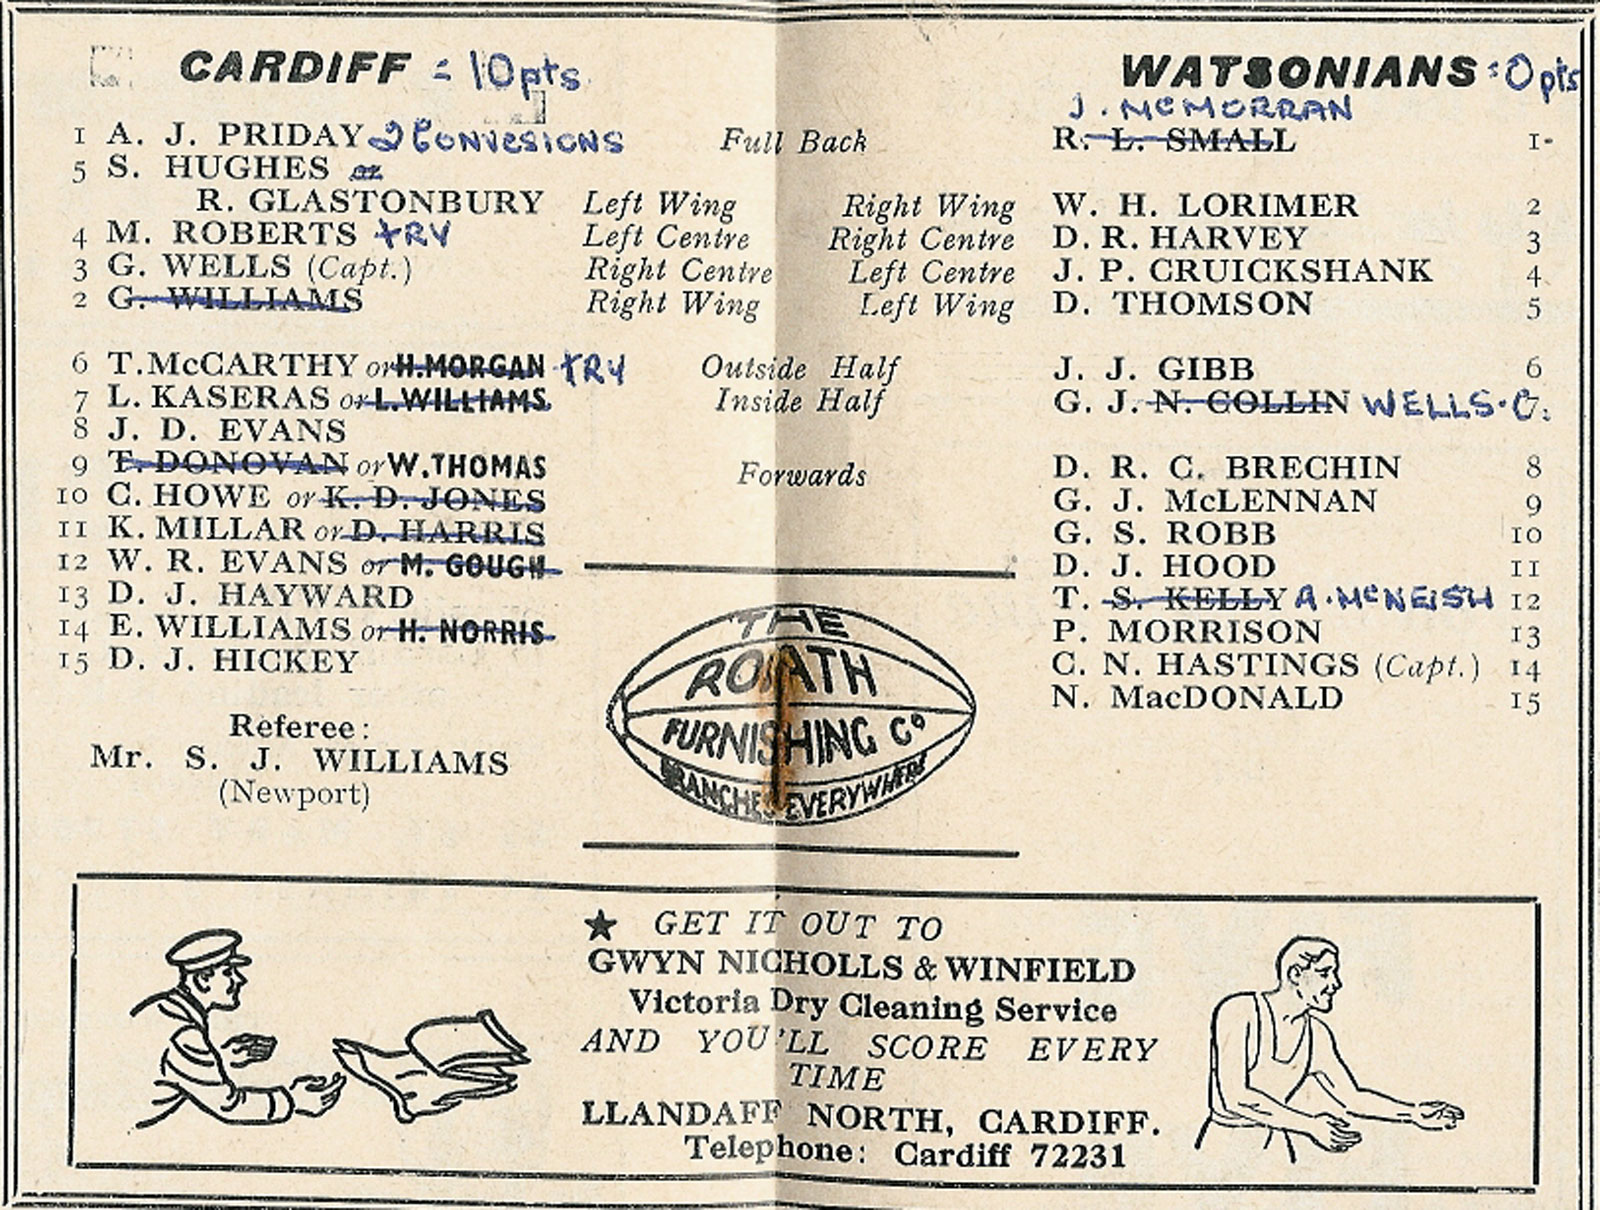 CARDIFF = 10pts
1 A. J. PRIDAY 2 CONVESIONS
5 S. HUGHES or
R. GLASTONBURY Left Wing
4 M. ROBERTS TRY Left Centre
3 G. WELLS (Capt.) Right Centre
2 G. WILLIAMS Right Wing
6 T. McCARTHY or H. MORGAN TRY
7 L. KASERAS or L. WILLIAMS
8 J. D. EVANS
9 T. DONOVAN or W. THOMAS
10 C. HOWE or K. D. JONES
11 K. MILLAR or D. HARRIS
12 W. R. EVANS or M. GOUGH
13 D. J. HAYWARD
14 E. WILLIAMS or H. NORRIS
15 D. J. HICKEY
Referee:
Mr. S. J. WILLIAMS
(Newport)
Full Back
Outside Half
Inside Half
Forwards
WATSONIANS = 0 pts
J. McMORRAN
R. L. SMALL 1-
Right Wing W. H. LORIMER 2
Right Centre D. R. HARVEY 3
Left Centre J. P. CRUICKSHANK 4
Left Wing D. THOMSON 5
J. J. GIBB 6
G. J. N. COLLIN WELLS.C. 7
D. R. C. BRECHIN 8
G. J. McLENNAN 9
G. S. ROBB 10
D. J. HOOD 11
T. S. KELLY A. McNEISH 12
P. MORRISON 13
C. N. HASTINGS (Capt.) 14
N. MacDONALD 15
THE
ROATH
FURNISHING Co
BRANCHES EVERYWHERE
★ GET IT OUT TO
GWYN NICHOLLS & WINFIELD
Victoria Dry Cleaning Service
AND YOU'LL SCORE EVERY
TIME
LLANDAFF NORTH, CARDIFF.
Telephone: Cardiff 72231